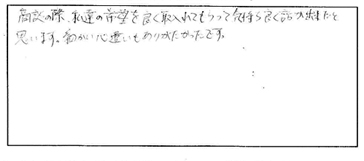 商談の際、私達の希望を良く取入れてもらって気持ち良く話が出来たと
思います。細かい心遣いもありがたかったです。